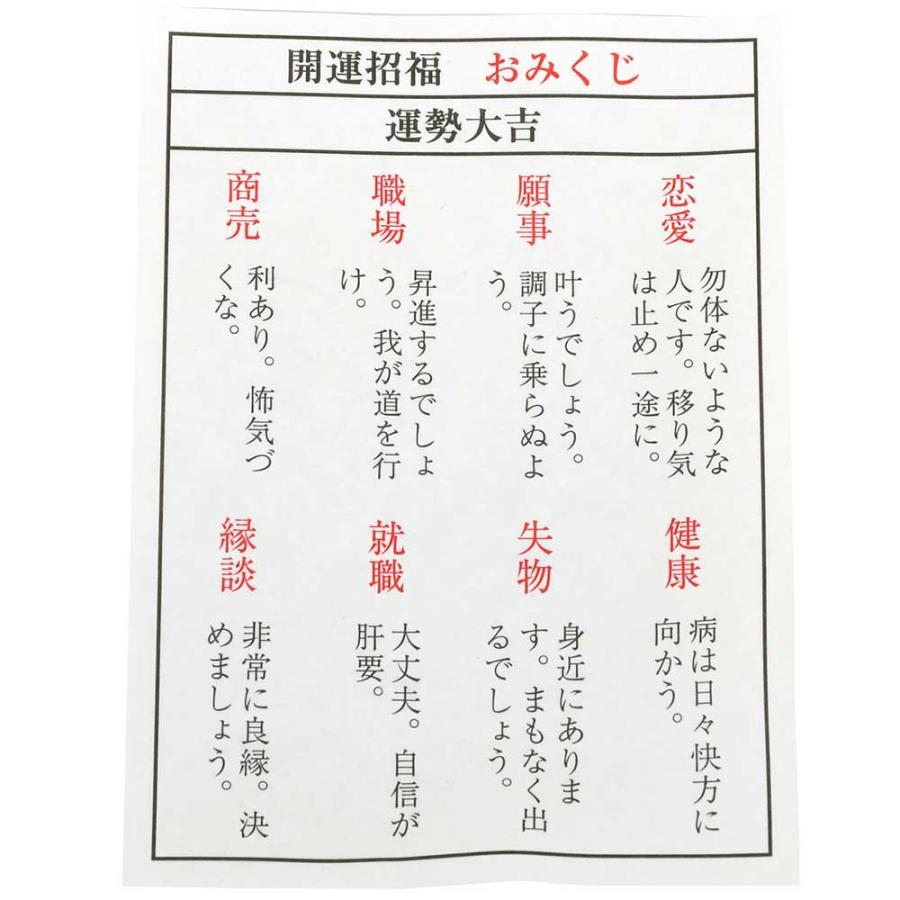 開運招福　おみくじ
運勢大吉
恋愛
勿体ないような
人です。移り気
は止め一途に。
願事
叶うでしょう。
調子に乗らぬよ
う。
職場
昇進するでしょ
う。我が道を行
け。
商売
利あり。怖気づ
くな。
健康
病は日々快方に
向かう。
失物
身近にありま
す。まもなく出
るでしょう。
就職
大丈夫。自信が
肝要。
縁談
非常に良縁。決
めましょう。